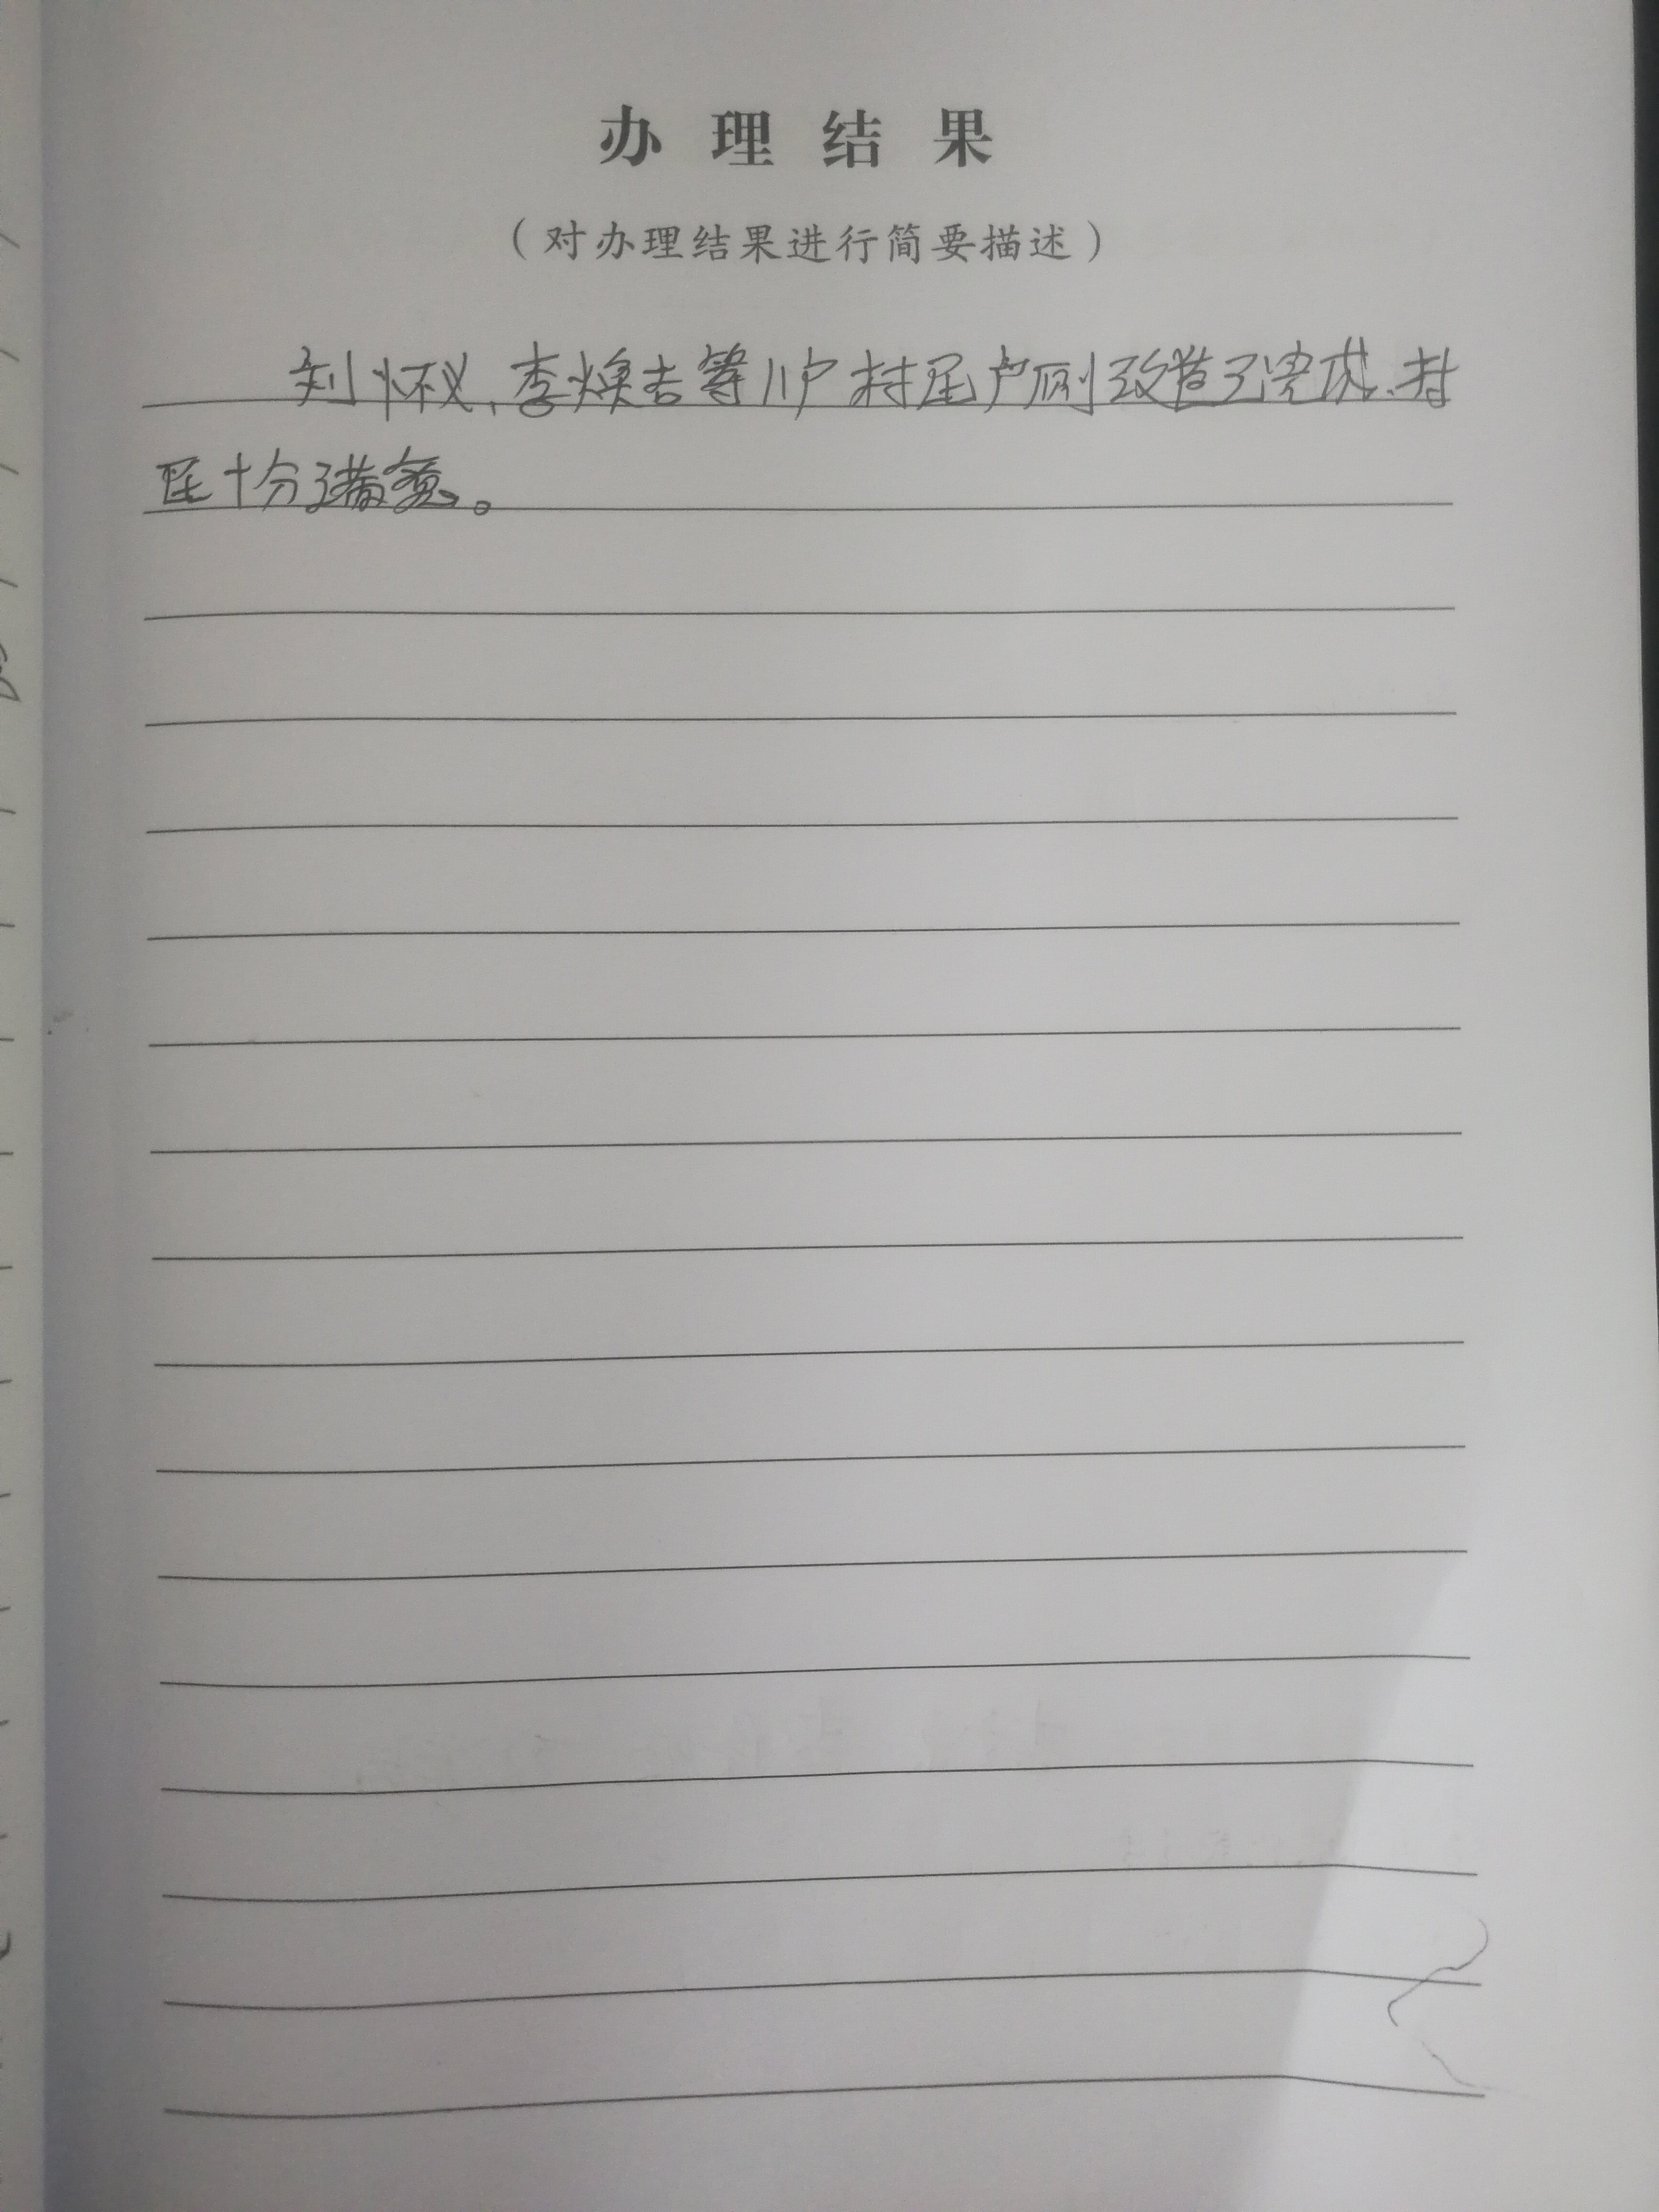 办理结果
（对办理结果进行简要描述）
刘怀义、李焕吉等11户村民户厕改造已完成、村
民十分满意。